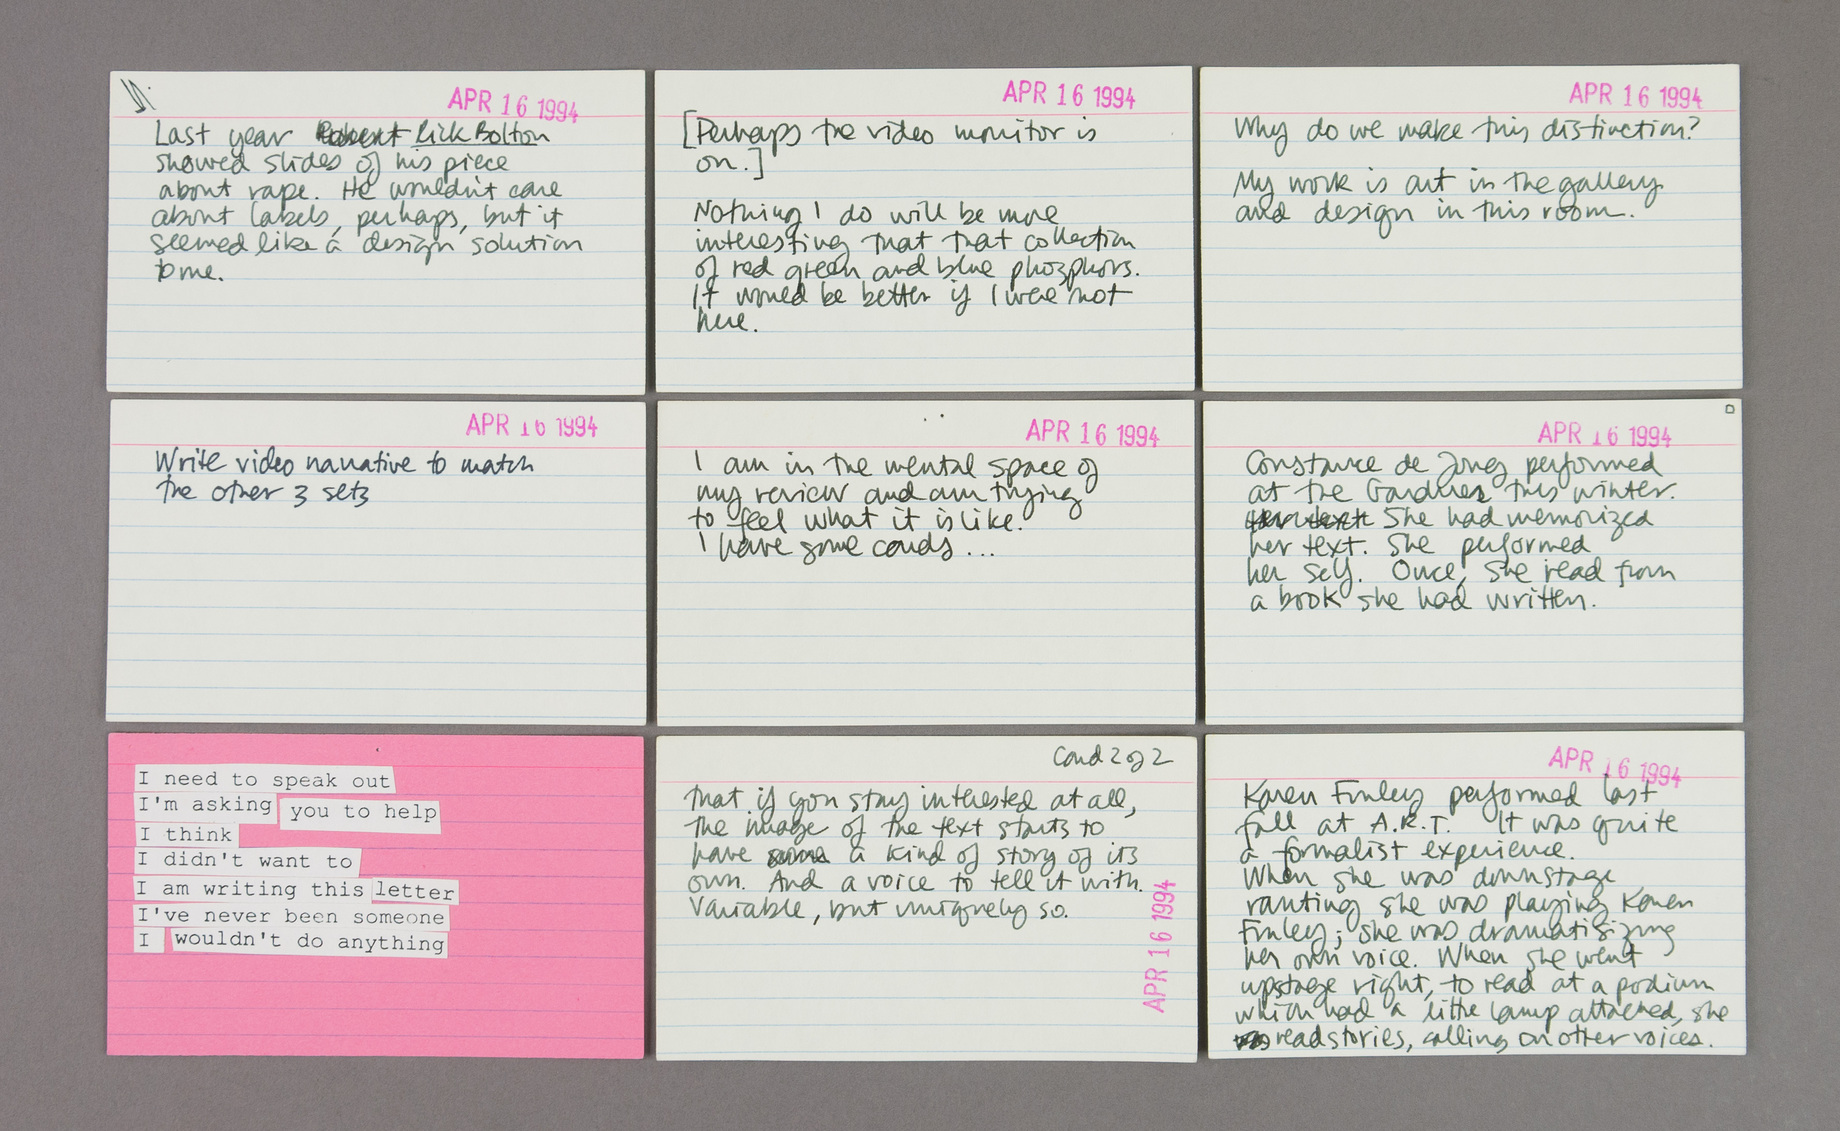 APR 16 1994
Last year Robert Rick Bolton
showed slides of his piece
about rape. He wouldn't care
about labels, perhaps, but it
seemed like a design solution
to me.
APR 16 1994
[Perhaps the video monitor is
on.]
Nothing I do will be more
interesting that that collection
of red green and blue phosphors.
It would be better if I were not
here.
APR 16 1994
Why do we make this distinction?
My work is art in the gallery
and design in this room.
APR 16 1994
Write video narrative to match
the other 3 sets
APR 16 1994
I am in the mental space of
my review and am trying
to feel what it is like.
I have some cards ...
APR 16 1994
Constance de Jong performed
at the Gardner this winter.
Her text She had memorized
her text. She performed
her self. Once, she read from
a book she had written.
I need to speak out
I'm asking you to help
I think
I didn't want to
I am writing this letter
I've never been someone
I wouldn't do anything
Card 2 of 2
that if you stay interested at all,
the image of the text starts to
have a kind of story of its
own. And a voice to tell it with.
Variable, but uniquely so.
APR 16 1994
APR 16 1994
Karen Finley performed last
fall at A.R.T. It was quite
a formalist experience.
When she was downstage
ranting she was playing Karen
Finley; she was dramatisizing
her own voice. When she went
upstage right, to read at a podium
which had a little lamp attached, she
read stories, calling on other voices.